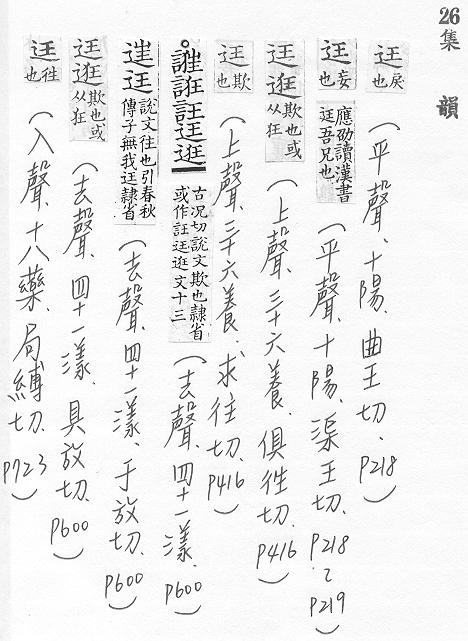 26 集韻
迋 戾也 (平聲、十陽、曲王切、P218)
迋 妄也 應劭讀漢書迋吾兄也 (平聲、十陽、渠王切、P218、219)
迋逛 欺也或从狂 (上聲、三十六養、俱往切、P416)
迋 欺也 (上聲、三十六養、求往切、P416)
誑註迋逛 古况切說文欺也隷省或作註迋逛文十三 (去聲、四十一漾、P600)
迋 說文往也引春秋傳子無我迋隷省 (去聲、四十一漾、于放切、P600)
迋逛 欺也或从狂 (去聲、四十一漾、具放切、P600)
迋 往也 (入聲、十八藥、局縛切、P723)